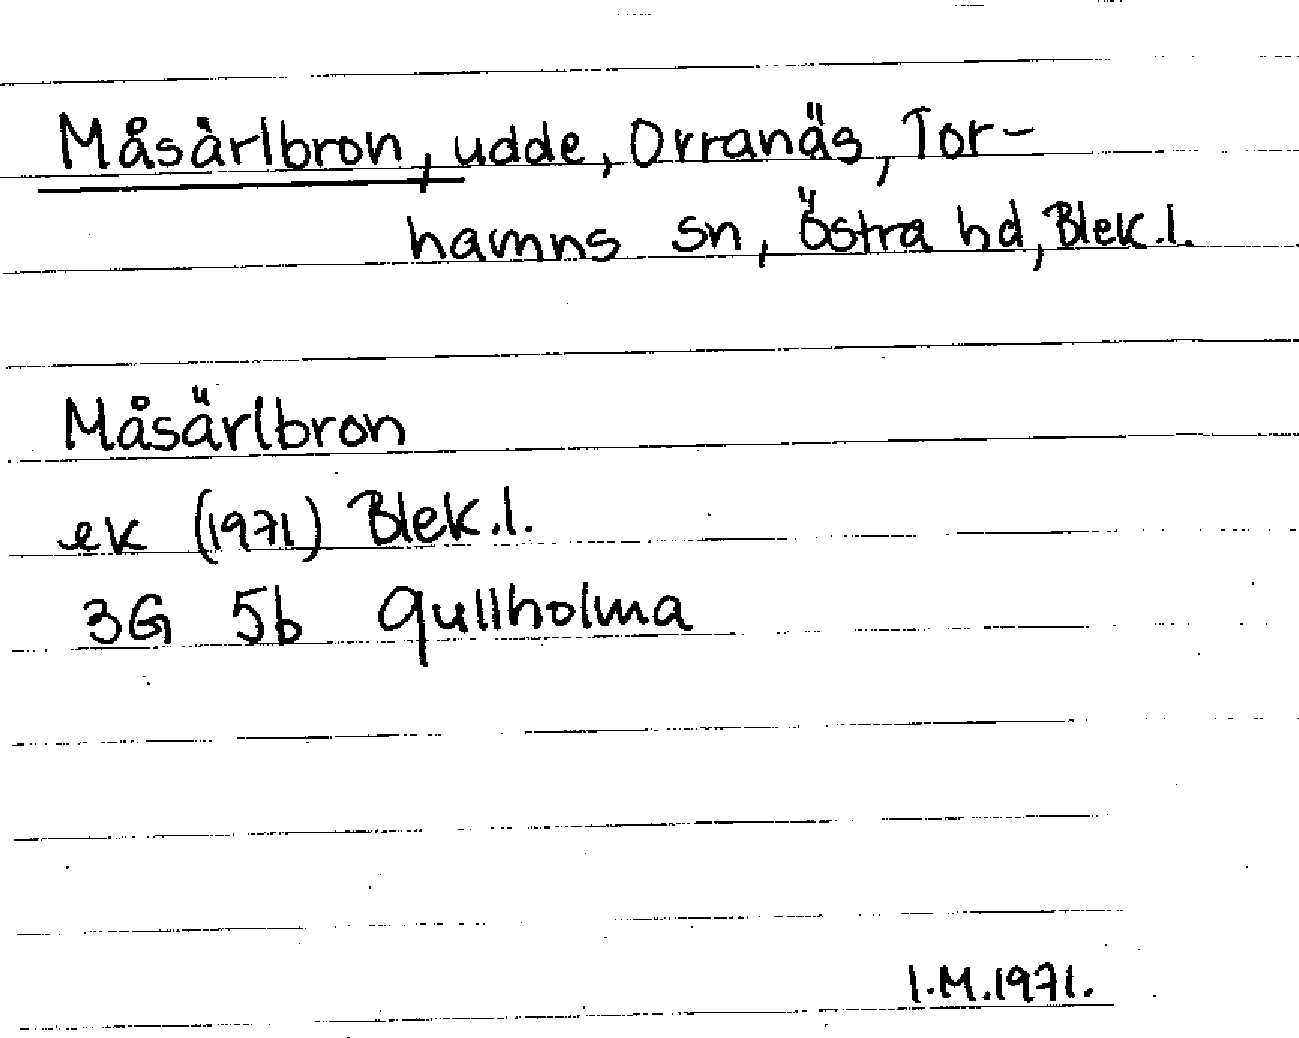 Måsärlbron, udde, Orranäs, Tor-
hamns sn, östra hd, Blek.l.
Måsärlbron
ek (1971) Blek.l.
3G 5b Gullholma
I.M.1971.